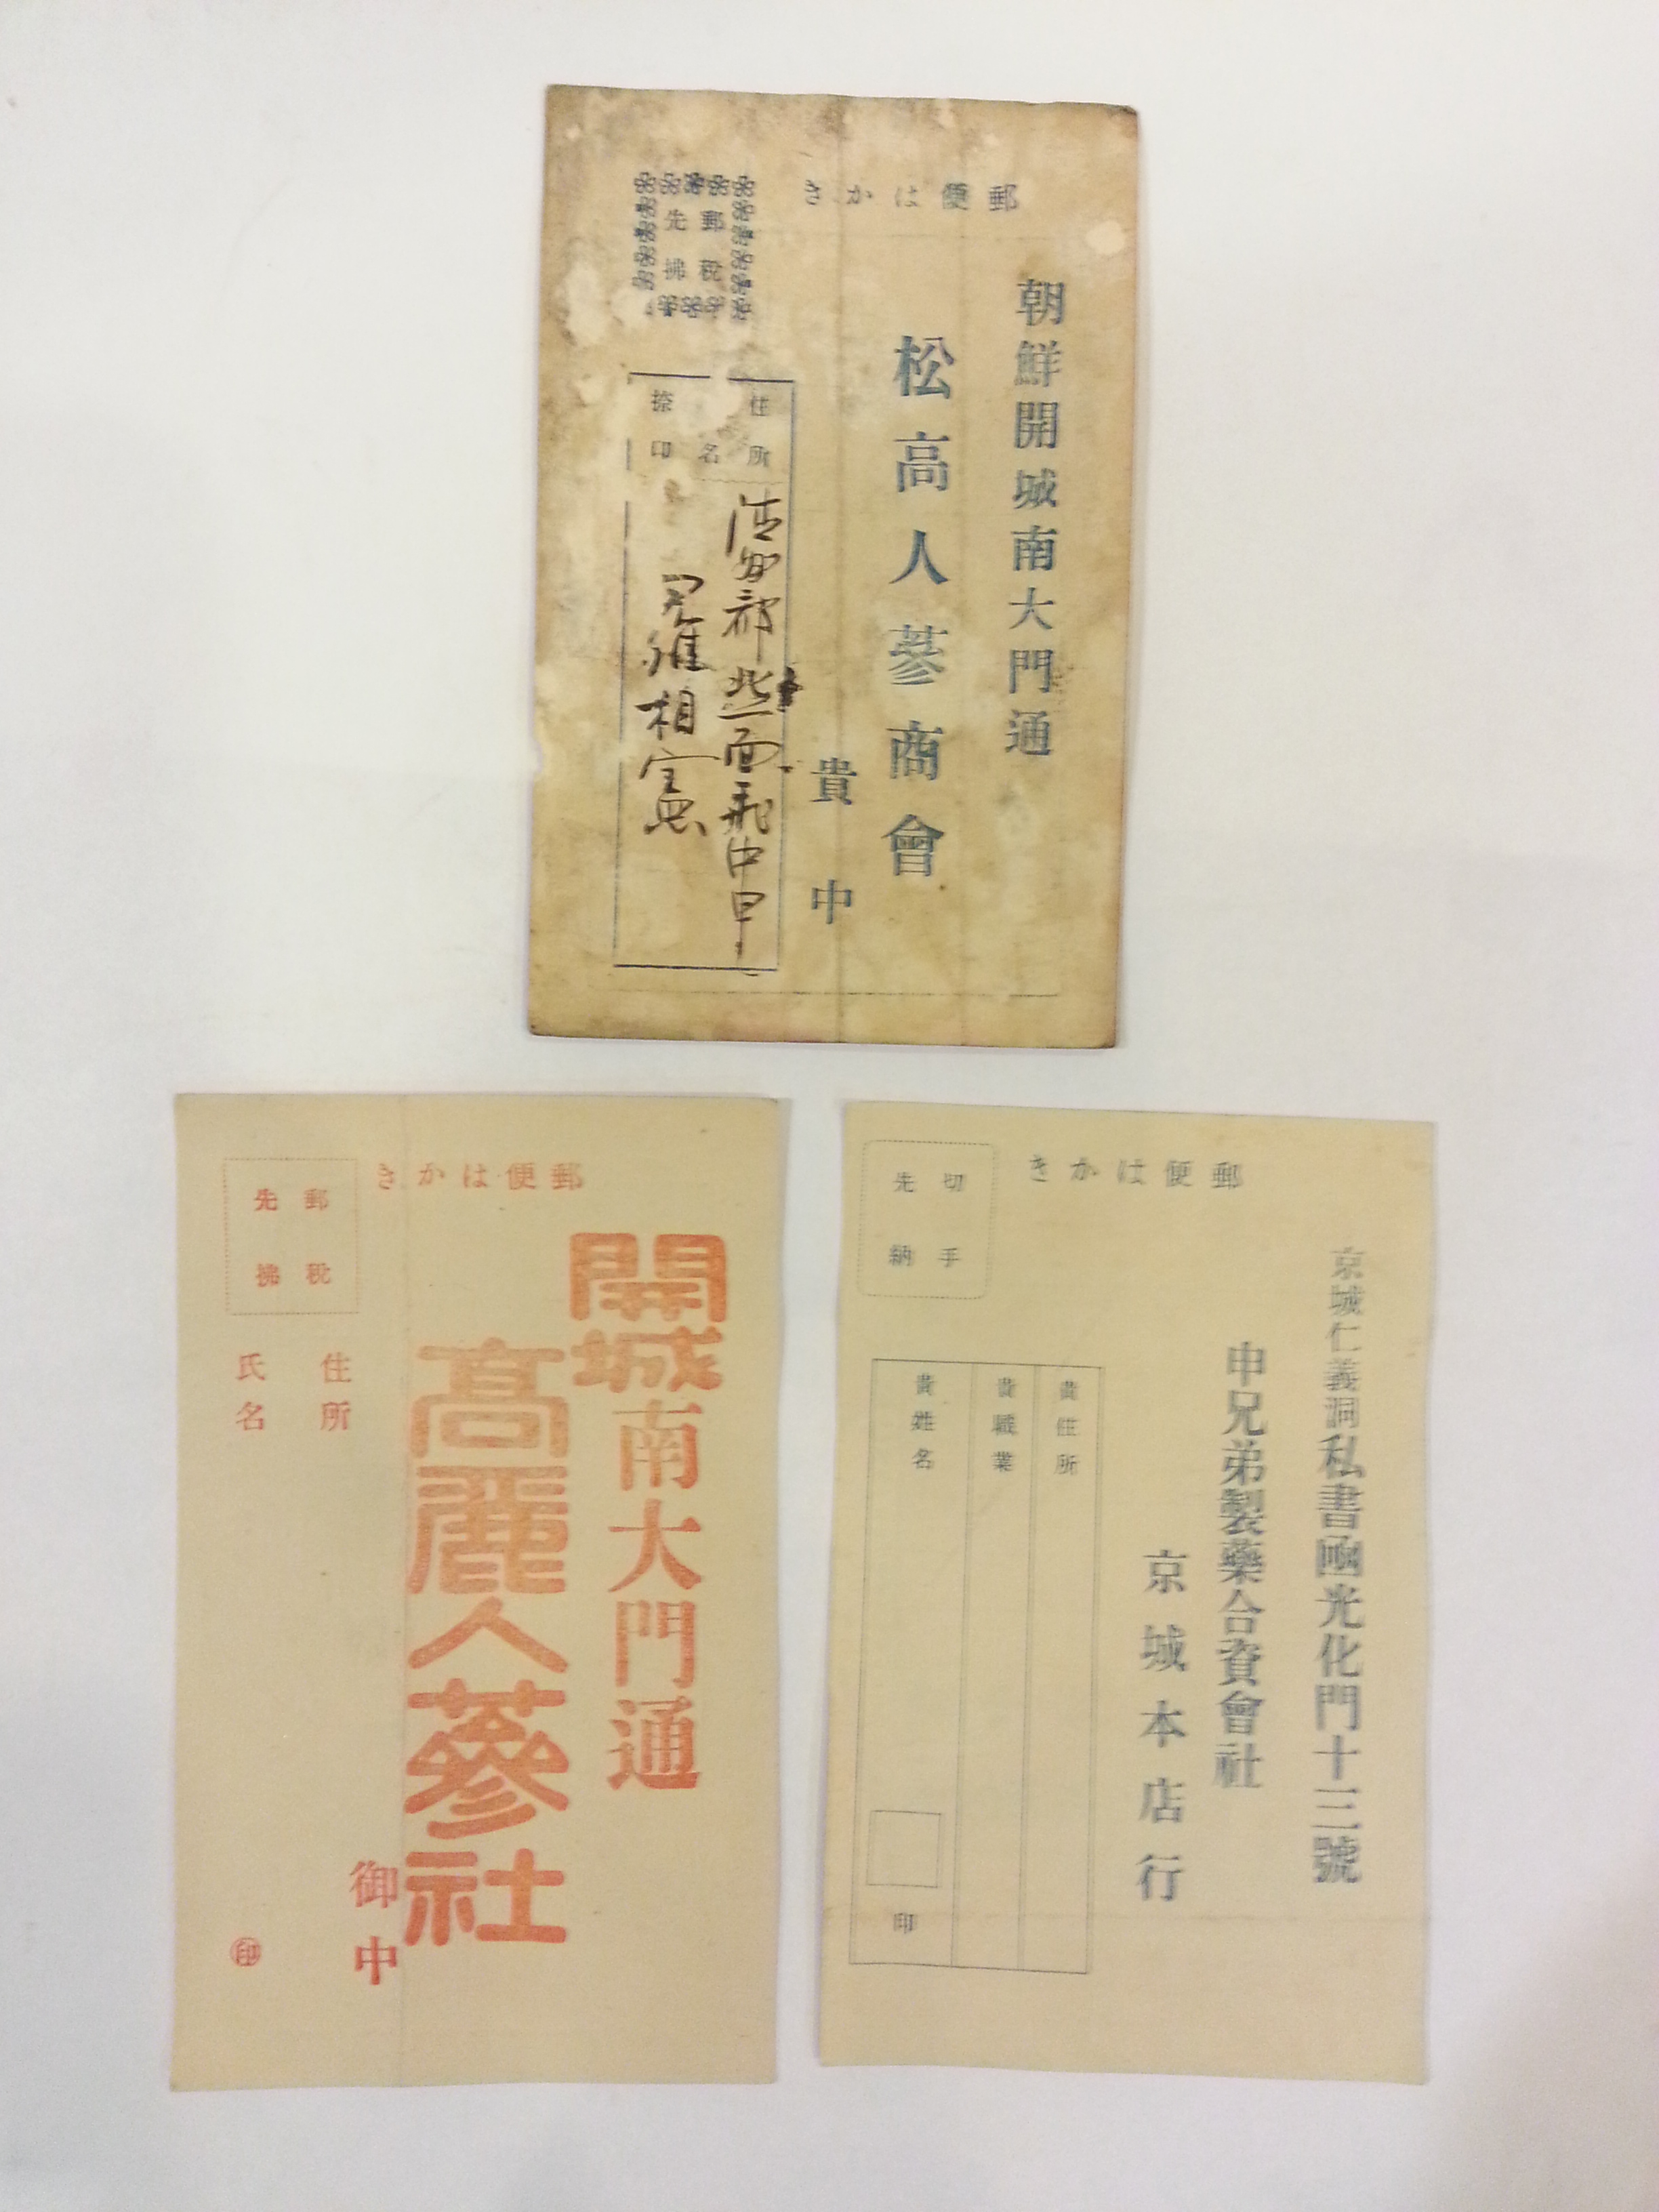 郵便はかき
郵税
先拂
朝鮮開城南大門通
松高人蔘商會
貴中
住所
名
捺印
相憲
郵便はかき
郵税
先拂
開城南大門通
高麗人蔘社
御中
住所
氏名
印
郵便はかき
切手
先納
京城仁義洞私書凾光化門十三號
申兄弟製藥合資會社
京城本店行
貴住所
貴職業
貴姓名
印